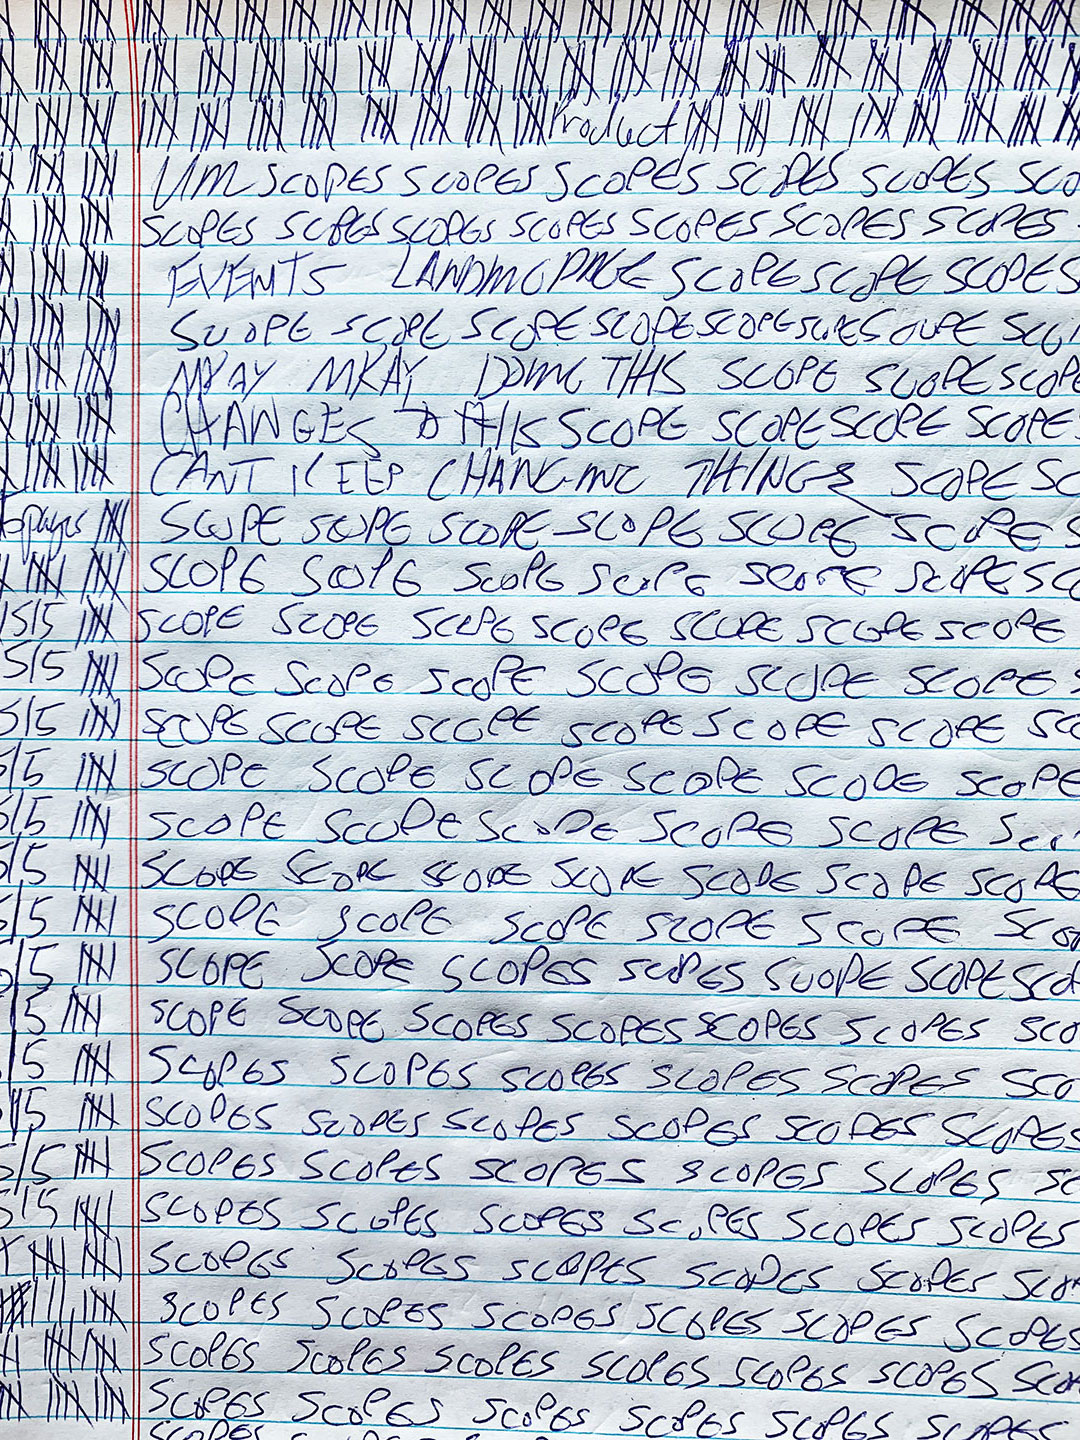 Product
UM SCOPES SCOPES SCOPES SCOPES SCOPES
SCOPES SCOPES SCOPES SCOPES SCOPES SCOPES SCOPES
EVENTS LANDING PAGE SCOPE SCOPE SCOPES
SCOPE SCOPE SCOPE SCOPE SCOPE SCOPES SCOPE
MKAY MKAY DOING THIS SCOPE SCOPE SCOPE
CHANGES THIS SCOPE SCOPE SCOPE SCOPE
CANT KEEP CHANGING THINGS SCOPE
SCOPE SCOPE SCOPE SCOPE SCOPE SCOPE
SCOPE SCOPE SCOPE SCOPE SCOPE SCOPE
5/5 SCOPE SCOPE SCOPE SCOPE SCOPE SCOPE SCOPE
5/5 SCOPE SCOPE SCOPE SCOPE SCOPE SCOPE
5/5 SCOPE SCOPE SCOPE SCOPE SCOPE SCOPE
/5 SCOPE SCOPE SCOPE SCOPE SCOPE SCOPE
5/5 SCOPE SCOPE SCOPE SCOPE SCOPE
5/5 SCOPE SCOPE SCOPE SCOPE SCOPE SCOPE SCOPE
5/5 SCOPE SCOPE SCOPE SCOPE SCOPE
5/5 SCOPE SCOPE SCOPES SCOPES SCOPE SCOPE
/5 SCOPE SCOPE SCOPES SCOPES SCOPES SCOPES
/5 SCOPES SCOPES SCOPES SCOPES SCOPES
5/5 SCOPES SCOPES SCOPES SCOPES SCOPES SCOPES
5/5 SCOPES SCOPES SCOPES SCOPES SCOPES
5/5 SCOPES SCOPES SCOPES SCOPES SCOPES SCOPES
SCOPES SCOPES SCOPES SCOPES SCOPES
SCOPES SCOPES SCOPES SCOPES SCOPES SCOPES
SCOPES SCOPES SCOPES SCOPES SCOPES SCOPES
SCOPES SCOPES SCOPES SCOPES SCOPES SCOPES